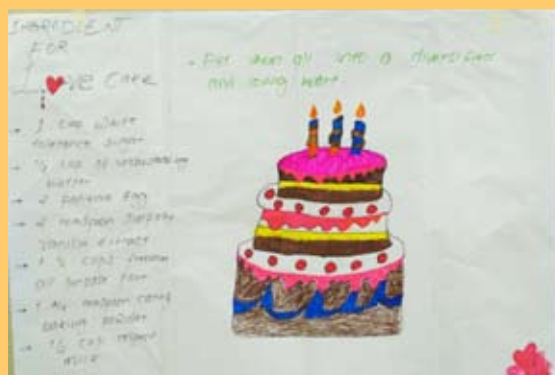 INGREDIENT
FOR
L❤VE CAKE
→ 1 cup white
tolerance sugar
→ ½ cup of understanding
butter
→ 2 patience Egg
→ 2 teaspoon
Vanilla extract
→ 1 ½ cups
all purpose
→ 1 ¾ teaspoon caring
baking powder
→ ½ cup respect
milk
→ Put them all into a
and loving heart